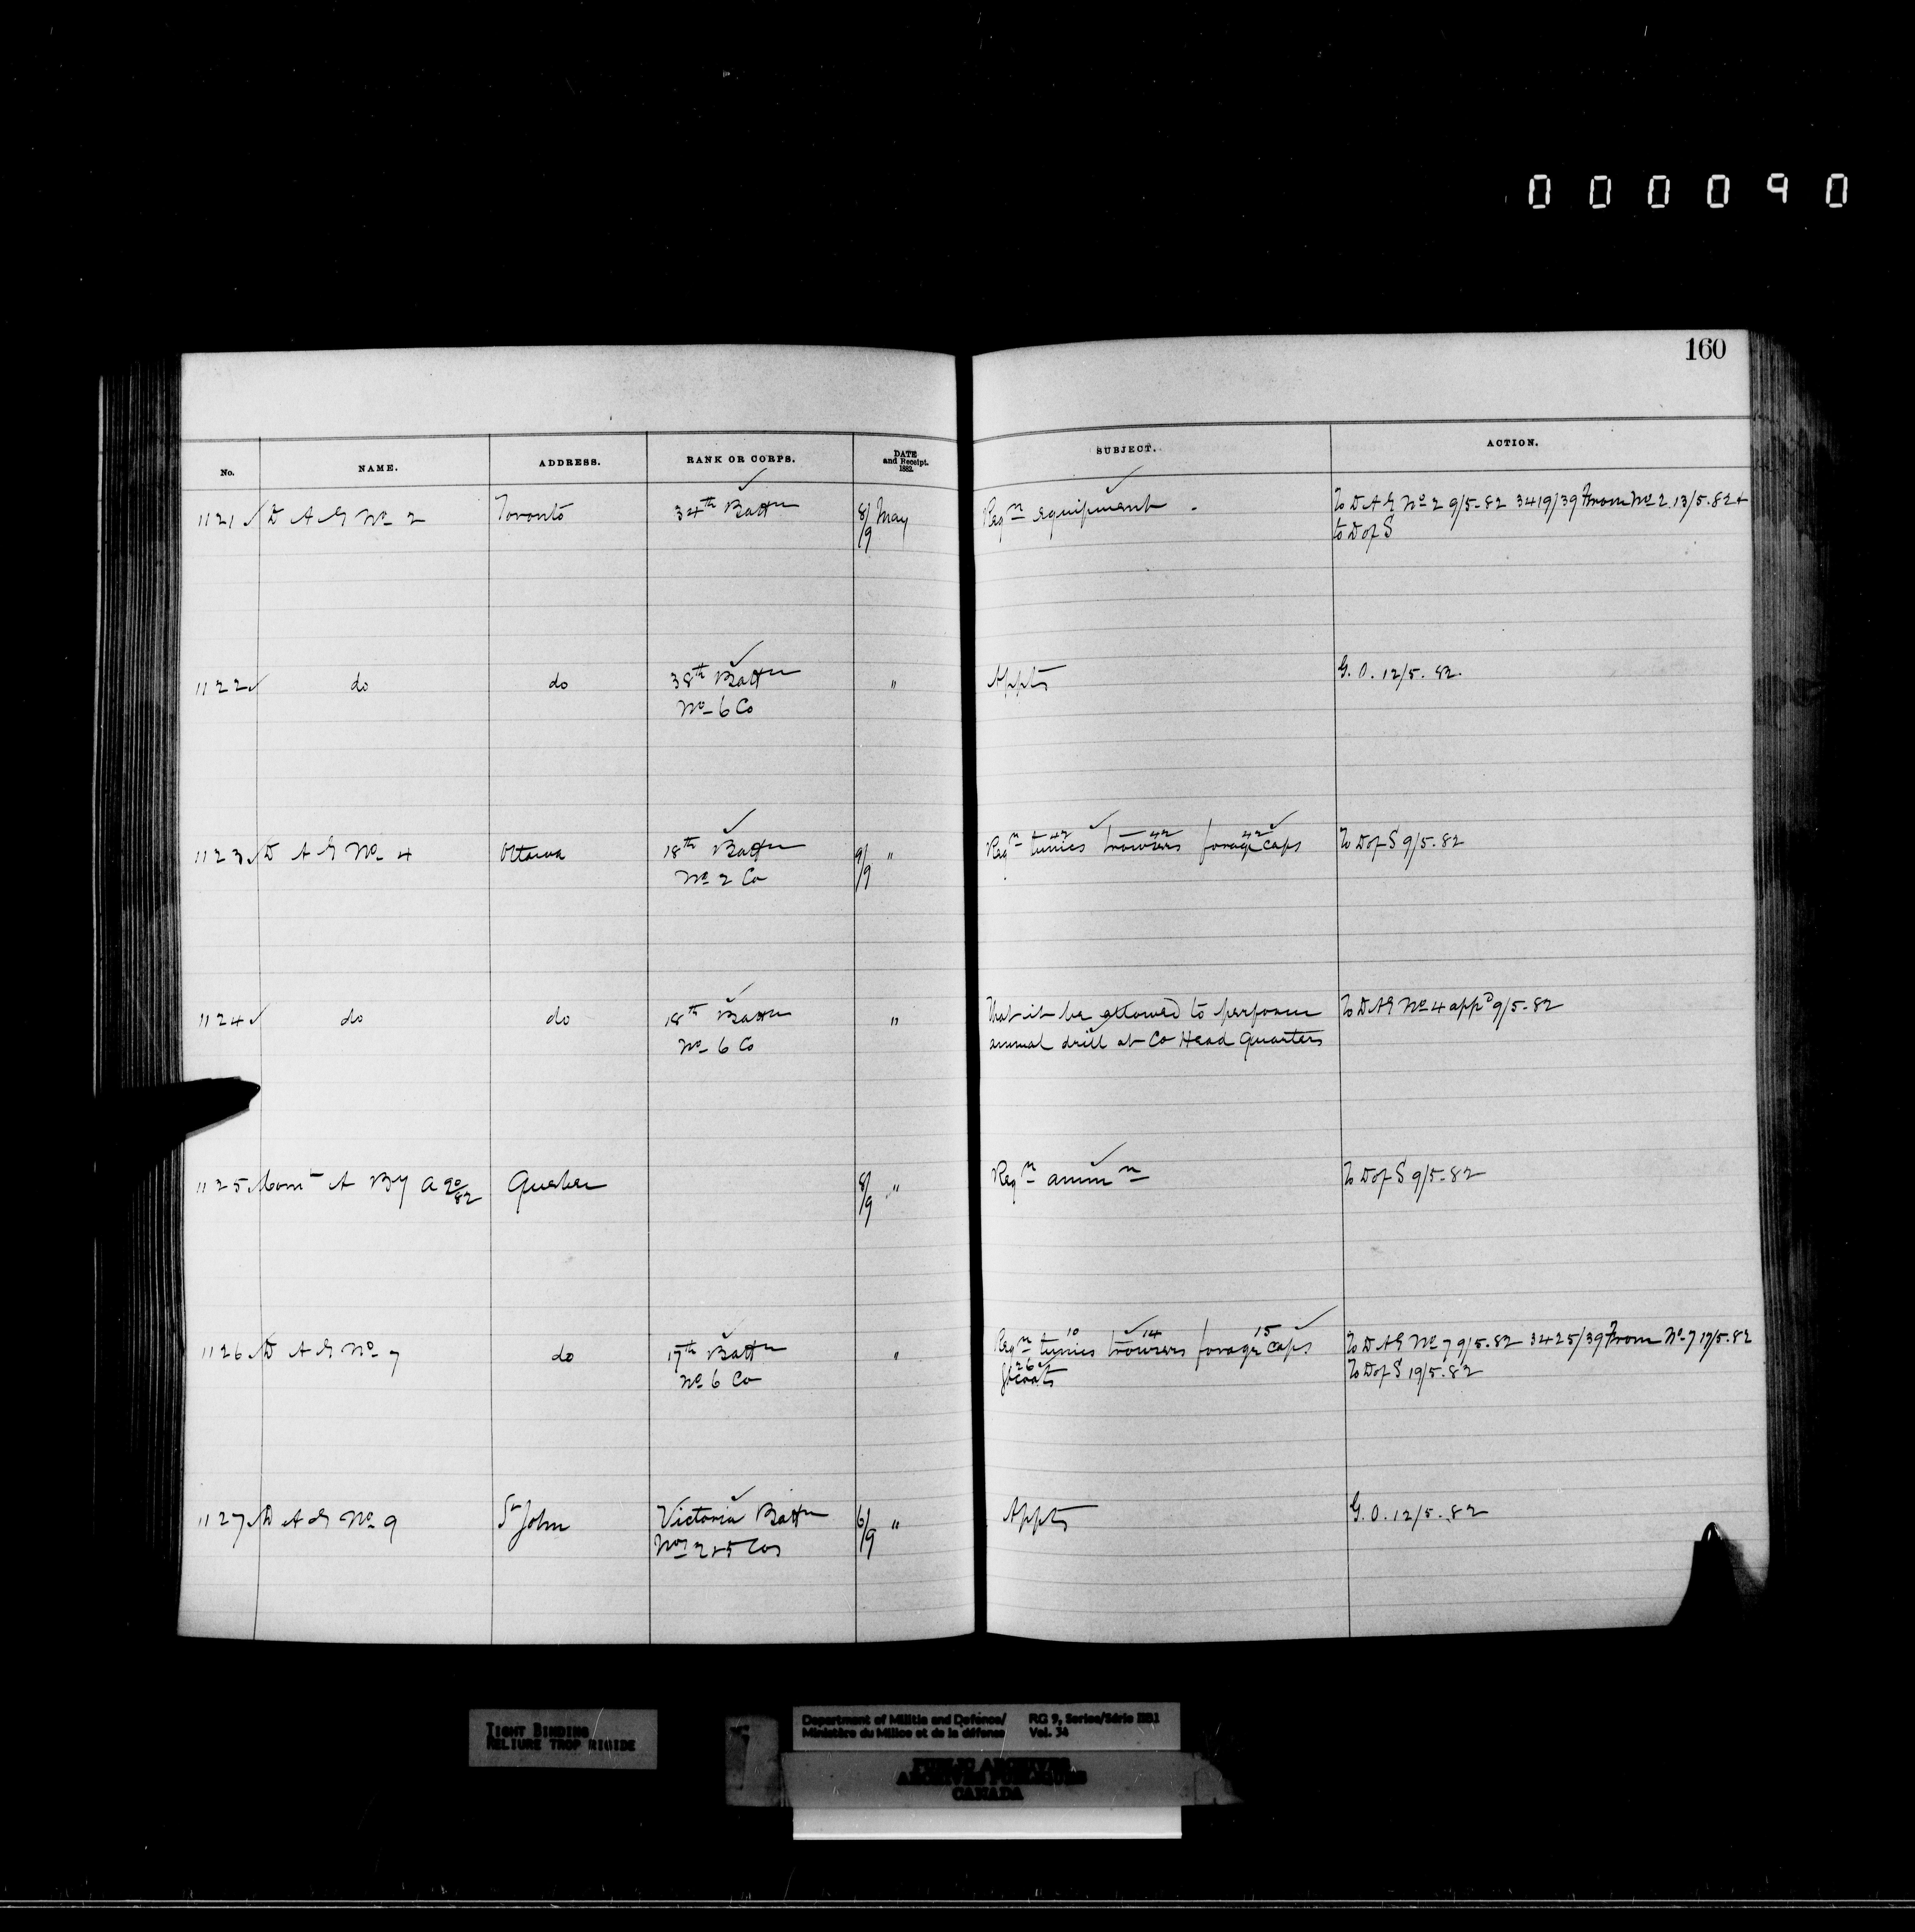 000090
160
No. NAME. ADDRESS. RANK OR CORPS. DATE and Receipt. 1882. SUBJECT. ACTION.
1121 ✓ D A G No 2 Toronto 34th Battn 8/9 May Reqn equipment. To D A G No 2 9/5-82 3419/39 From No 2. 13/5.82 +
to D of S
1122 ✓ do do 38th Battn " Appts G. O. 12/5. 82.
No 6 Co
1123 ✓ D A G No 4 Ottawa 18th Battn 9/9 " Reqn 42 tunics 42 trousers 42 forage caps To D of S 9/5-82
No 2 Co
1124 ✓ do do 18th Battn " That it be allowed to perform To D A G No 4 appd 9/5-82
No 6 Co annual drill at Co Head Quarters
1125 ✓ Comt A By A 20/82 Quebec 8/9 " Reqn ammn To D of S 9/5-82
1126 ✓ D A G No 7 do 17th Battn " Reqn 10 tunics 14 trousers 15 forage caps To D A G No 7 9/5-82 3425/39 From No 7 17/5.82
No 6 Co 26 gt coats To D of S 19/5-82
1127 ✓ D A G No 9 St John Victoria Battn 6/9 " Appts G. O. 12/5-82
Nos 2 & 5 Cos
TIGHT BINDING
RELIURE TROP RIGIDE
Department of Militia and Defence/ RG 9, Series/Série IIB1
Ministère du Milice et de la défense Vol. 34
PUBLIC ARCHIVES
ARCHIVES PUBLIQUES
CANADA